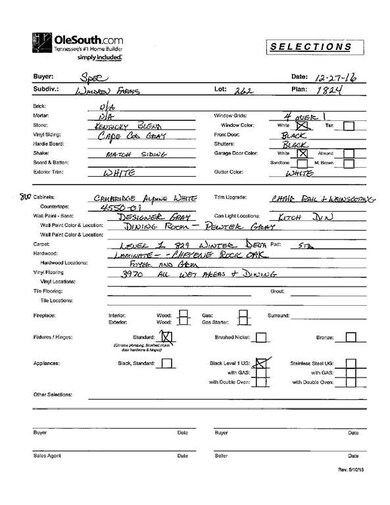 OleSouth.com
Tennessee's #1 Home Builder
simply included.
SELECTIONS
Buyer: Spec Date: 12-27-16
Subdiv.: Walden Farms Lot: 262 Plan: 1824
Brick: N/A
Mortar: N/A Window Grids: 4 over 1
Stone: Kentucky Blend Window Color: White Tan
Vinyl Siding: Cape Cod Gray Front Door: Black
Hardie Board: Shutters: Black
Shake: Match Siding Garage Door Color: White Almond
Board & Batten: Sandtone M. Brown
Exterior Trim: White Gutter Color: White
Cabinets: Cambridge Alpine White Trim Upgrade: Chair Rail + Wainscoting
Countertops: 4550-01
Wall Paint - Base: Designer Gray Gas Light Locations: Kitch
Wall Paint Color & Location: Dining Room - Pewter Gray
Wall Paint Color & Location:
Carpet: Level 1 829 Winter Pad: STD
Hardwood: Laminate - Cheyenne Rock Oak
Hardwood Locations: Foyer and
Vinyl Flooring 3970 All Wet Areas + Dining
Vinyl Locations:
Tile Flooring: Grout:
Tile Locations:
Fireplace: Interior: Wood: Gas: Surround:
Exterior: Wood: Gas Starter:
Fixtures / Hinges: Standard: Brushed Nickel: Bronze:
Appliances: Black, Standard: Black Level 1 UG: Stainless Steel UG:
with GAS: with GAS:
with Double Oven: with Double Oven:
Other Selections:
Buyer Date Buyer Date
Sales Agent Date Seller Date